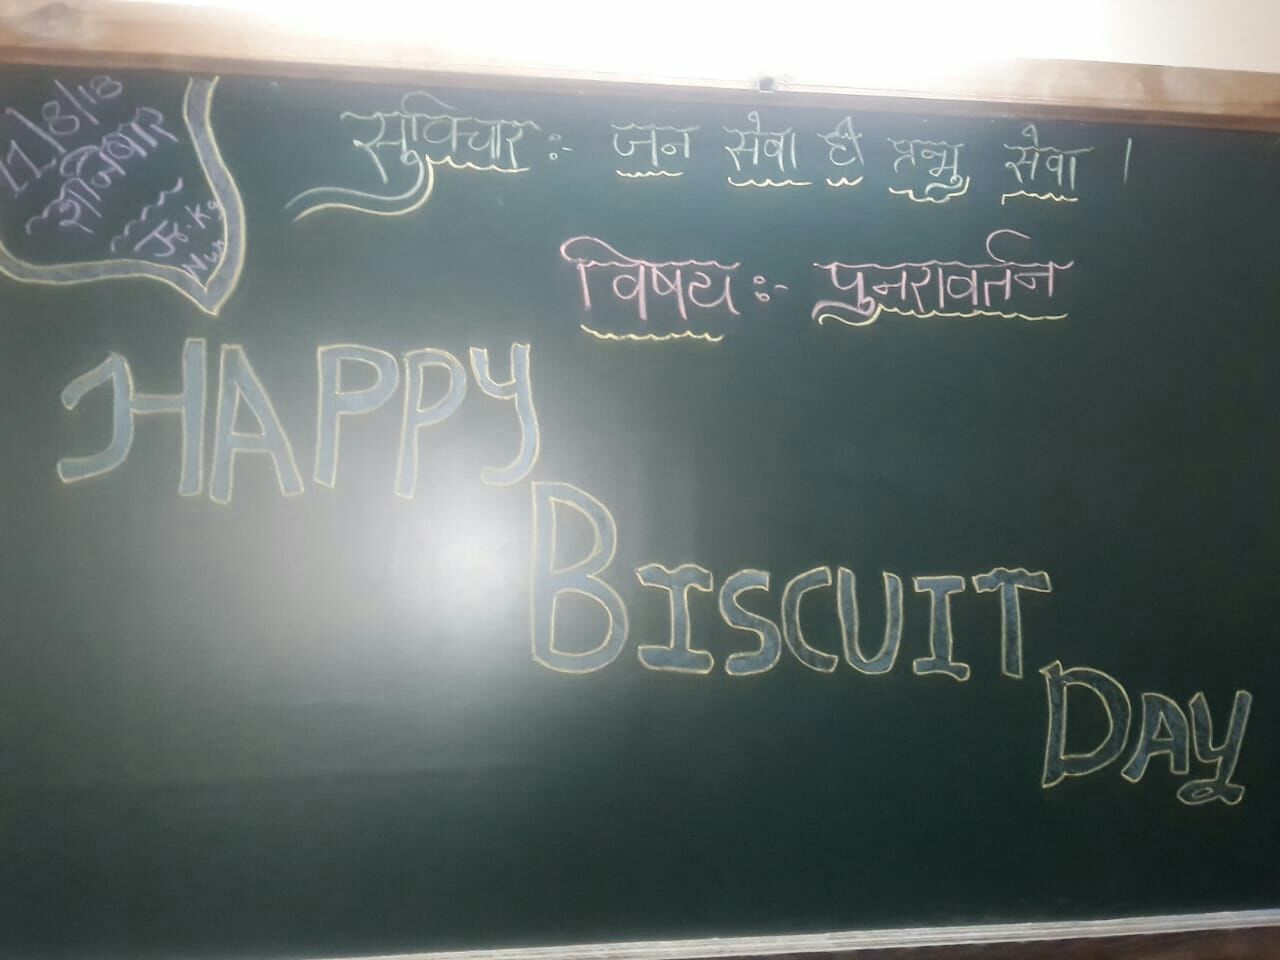 11/8/18
शनिवार
Jr. Kg
सुविचार :- जन सेवा ही प्रभु सेवा ।
विषय :- पुनरावर्तन
HAPPY
BISCUIT
DAY